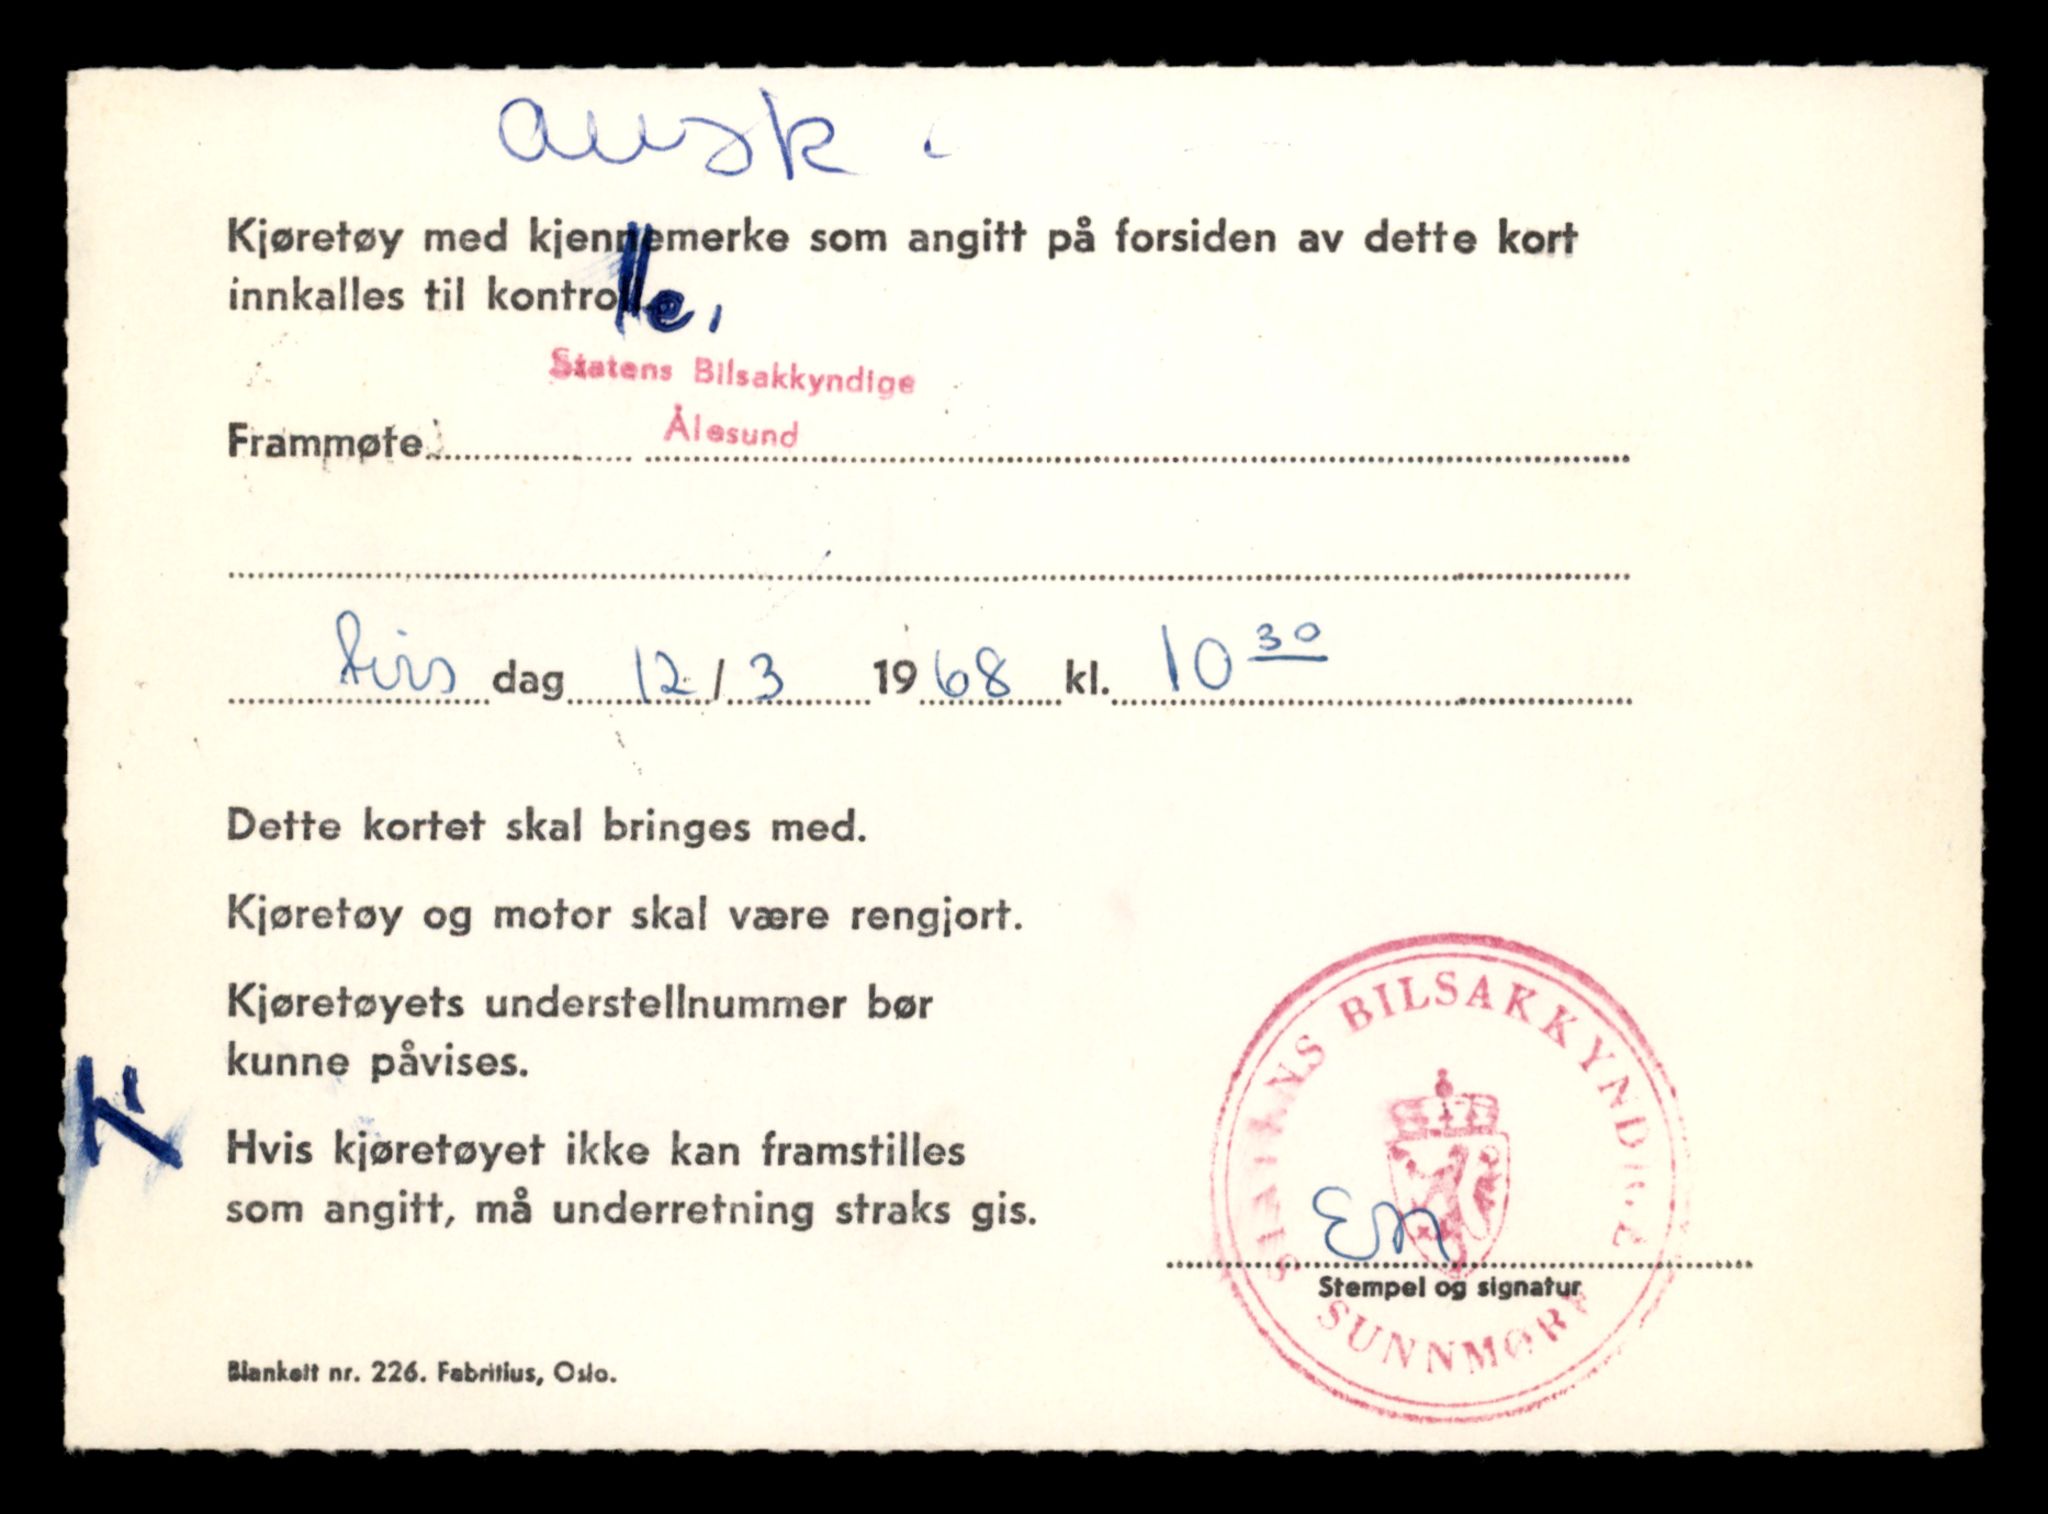 Kjøretøy med kjennemerke som angitt på forsiden av dette kort
innkalles til kontroll.
Statens Bilsakkyndige
Ålesund
Frammøte
tirsdag 12/3 1968 kl. 10 30
Dette kortet skal bringes med.
Kjøretøy og motor skal være rengjort.
Kjøretøyets understellnummer bør
kunne påvises.
Hvis kjøretøyet ikke kan framstilles
som angitt, må underretning straks gis.
STATENS BILSAKKYNDIGE
SUNNMØRE
En
Stempel og signatur
Blankett nr. 226. Fabritius, Oslo.